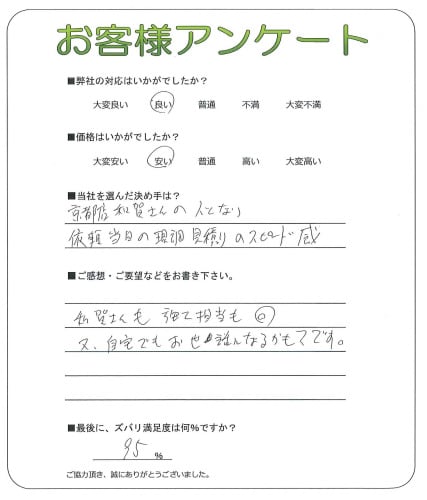 お客様アンケート
■弊社の対応はいかがでしたか？
大変良い 良い 普通 不満 大変不満
■価格はいかがでしたか？
大変安い 安い 普通 高い 大変高い
■当社を選んだ決め手は？
京都店 和賀さんの人となり
依頼当日の現調見積りのスピード感
■ご感想・ご要望などをお書き下さい。
和賀さんも 施工担当も ◎
又、自宅でもお世話んなるかもです。
■最後に、ズバリ満足度は何％ですか？
95 %
ご協力頂き、誠にありがとうございました。